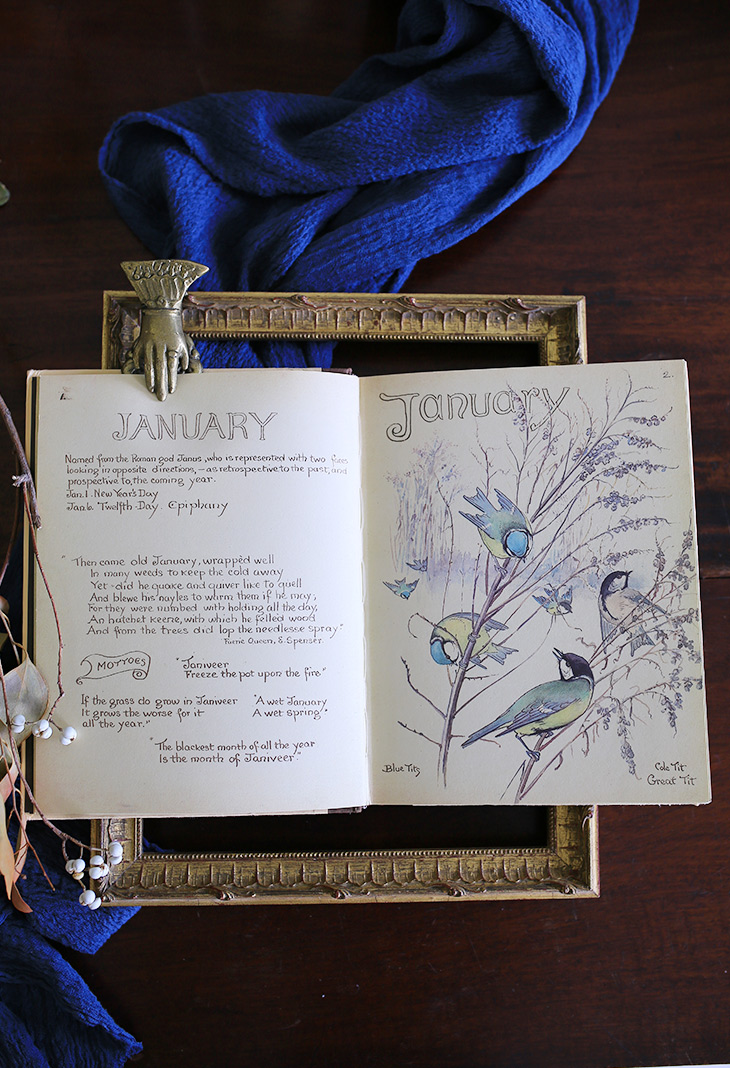 JANUARY
Named from the Roman god Janus, who is represented with two faces
looking in opposite directions, – as retrospective to the past, and
prospective to, the coming year.
Jan. 1. New Year's Day
Jan 6. Twelfth-Day. Epiphany
"Then came old January, wrappèd well
In many weeds to keep the cold away
Yet did he quake and quiver like to quell
And blowe his nayles to warm them if he may;
For they were numbed with holding all the day,
An hatchet keene, with which he felled wood
And from the trees did lop the needlesse spray"
Faerie Queen, E. Spenser
MOTTOES
"Janiveer
Freeze the pot upon the fire"
If the grass do grow in Janiveer
It grows the worse for it
all the year."
"A wet January
A wet Spring."
"The blackest month of all the year
Is the month of Janiveer."
2.
January
Blue Tits
Cole Tit
Great Tit